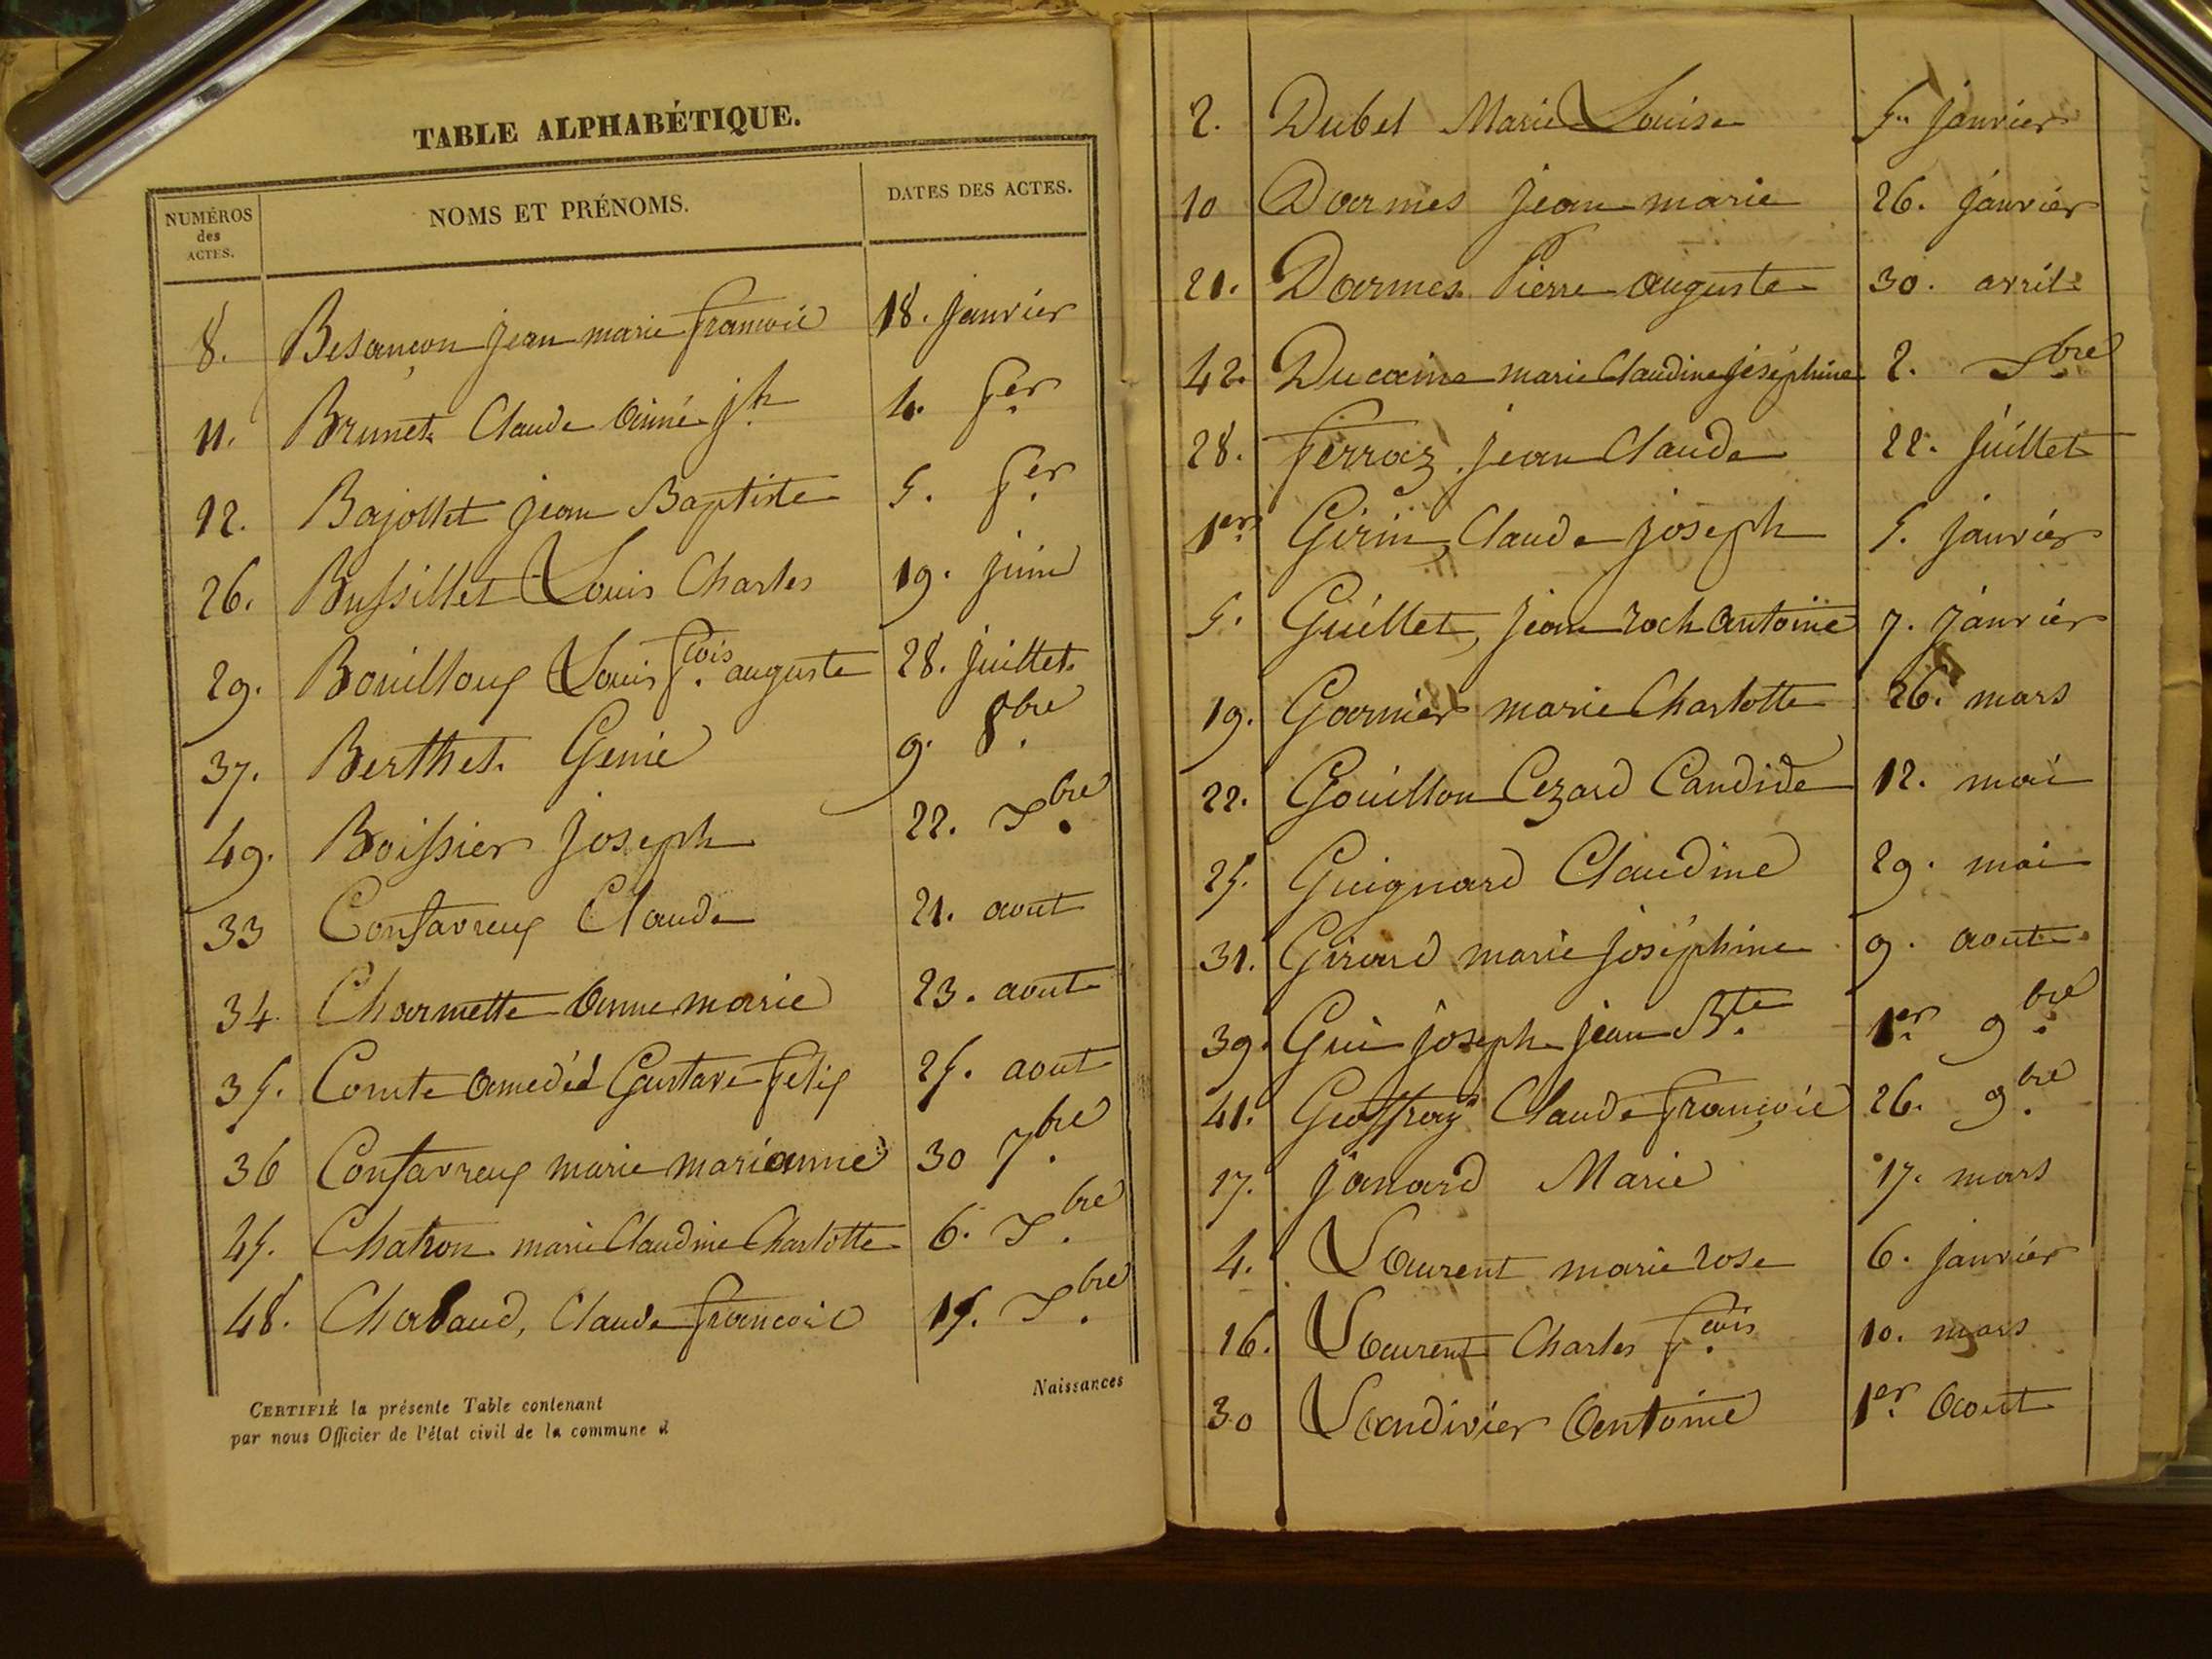 TABLE ALPHABÉTIQUE.
NUMÉROS des ACTES. NOMS ET PRÉNOMS. DATES DES ACTES.
8. Besançon jean marie francois 18. janvier
11. Brunet Claude aimé jh 4. fer
12. Bajollet jean Baptiste 5. fer
26. Bussillet Louis Charles 19. juin
29. Bouilloux Louis fcois auguste 28. juillet
37. Berthet Genie 9. 8bre
49. Boissier joseph 22. Xbre
33 Confavreux Claude 21. aout
34 Charmette anne marie 23. aout
35. Comte amedéé Gustave felix 25. aout
36 Confavreux marie marianne 30 7bre
45. Chatron marie Claudine Charlotte 6. Xbre
48. Chabaud, Claude francois 15. Xbre
Naissances
CERTIFIÉ la présente Table contenant
par nous Officier de l'état civil de la commune d
2. Dubet Marie Louise 5. janvier
10 Darmes jean marie 26. janvier
21. Darmes Pierre auguste 30. avril
42. Ducaine marie Claudine joséphine 2. Xbre
28. ferraz jean Claude 22. juillet
1er Girin, Claude joseph 5. janvier
5. Guillet, jean roch antoine 7. janvier
19. Garnier marie Charlotte 26. mars
22. Gouillon Cezard Candide 12. mai
25. Guignard Claudine 29. mai
31. Girard marie joséphine 9. aout
39. Gui joseph jean Bte 1er 9bre
41. Geoffray Claude françois 26. 9bre
17. janard Marie 17. mars
4. Laurent marie rose 6. janvier
16. Laurent Charles fcois 10. mars
30 Landivier antoine 1er aout